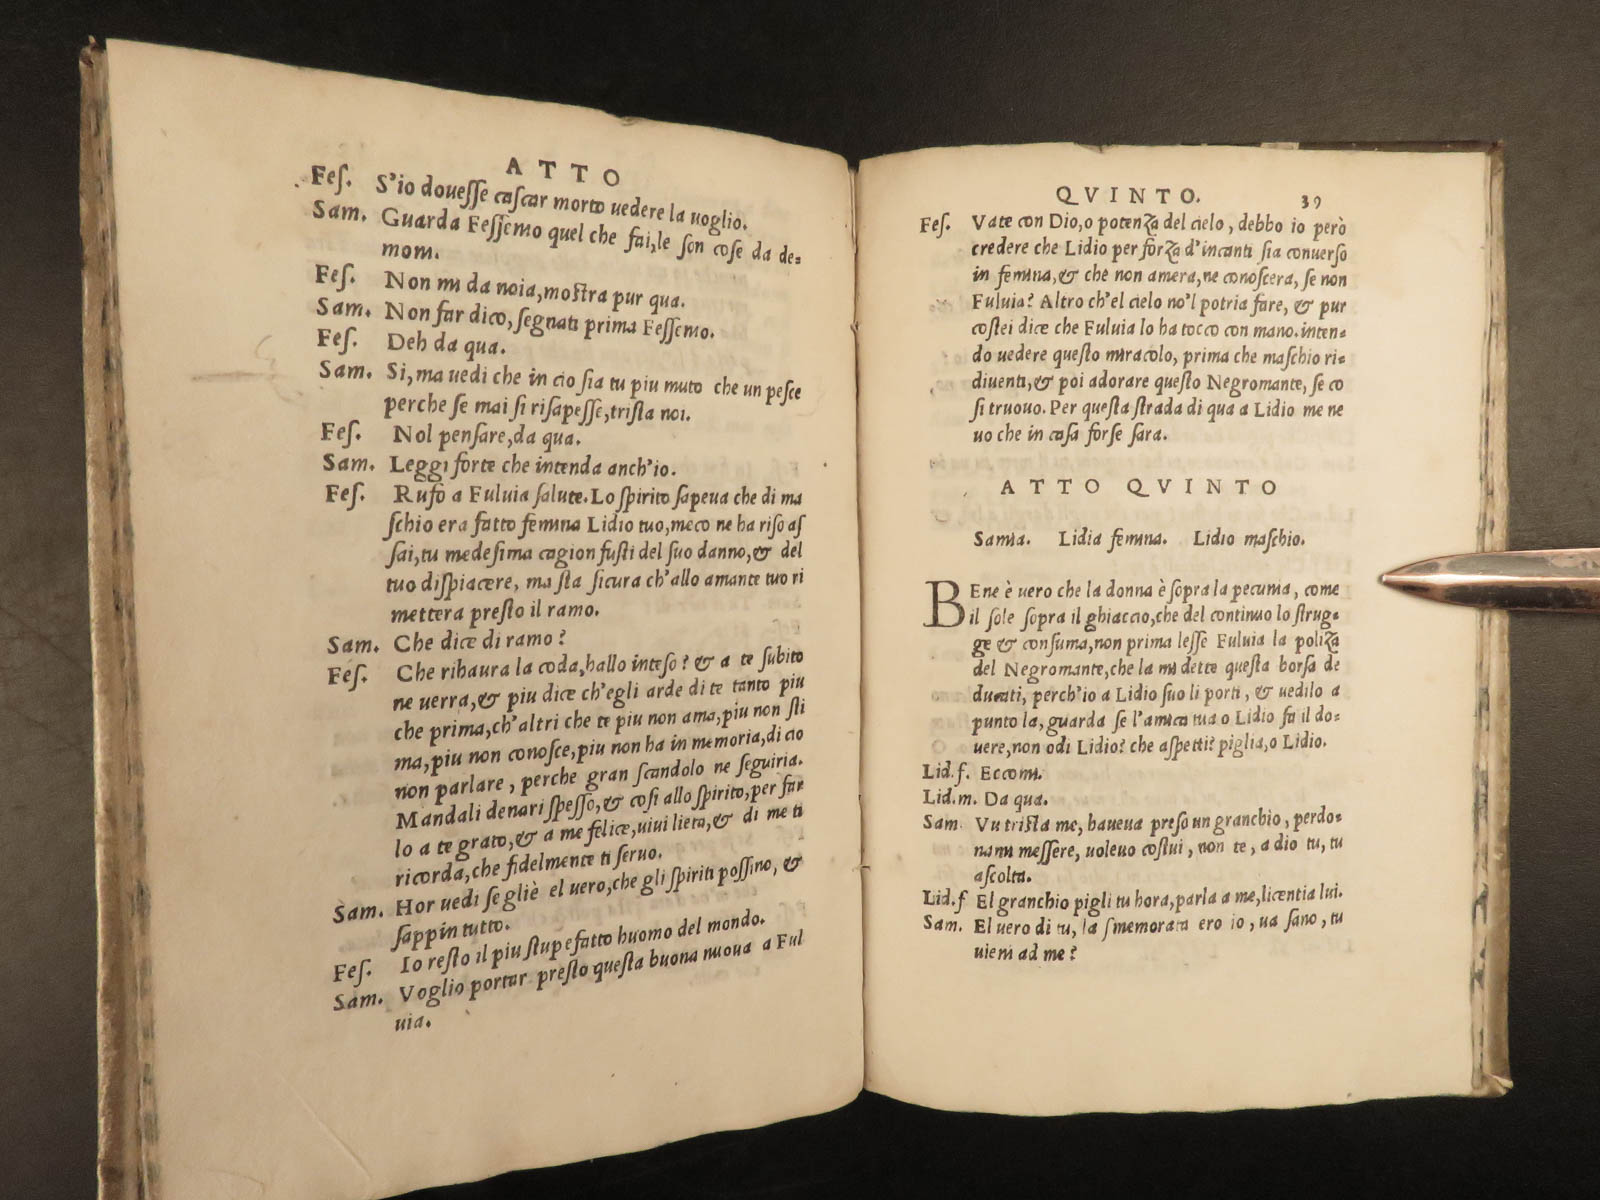 ATTO
Feſ. S'io doueſſe caſcar morto uedere la uoglio.
Sam. Guarda Feſſemo quel che fai, le ſon coſe da de=
moni.
Feſ. Non mi da noia, moſtra pur qua.
Sam. Non far dico, ſegnati prima Feſſemo.
Feſ. Deh da qua.
Sam. Si, ma uedi che in cio ſia tu piu muto che un peſce
perche ſe mai ſi riſapeſſe, triſta noi.
Feſ. Nol penſare, da qua.
Sam. Leggi forte che intenda anch'io.
Feſ. Rufo a Fuluia ſalute. Lo ſpirito ſapeua che di ma
ſchio era fatto femina Lidio tuo, meco ne ha riſo aſ
ſai, tu medeſima cagion fuſti del ſuo danno, & del
tuo diſpiacere, ma ſta ſicura ch'allo amante tuo ri
mettera preſto il ramo.
Sam. Che dice di ramo?
Feſ. Che rihaura la coda, hallo inteſo? & a te ſubito
ne uerra, & piu dice ch'egli arde di te tanto piu
che prima, ch'altri che te piu non ama, piu non ſti
ma, piu non conoſce, piu non ha in memoria, di cio
non parlare, perche gran ſcandolo ne ſeguiria.
Mandali denari ſpeſſo, & coſi allo ſpirito, per far
lo a te grato, & a me felice, uiui lieta, & di me ti
ricorda, che fidelmente ti ſeruo.
Sam. Hor uedi ſe gliè el uero, che gli ſpiriti poſſino, &
ſappin tutto.
Feſ. Io reſto il piu ſtupefatto huomo del mondo.
Sam. Voglio portar preſto queſta buona nuoua a Ful
uia.
QVINTO. 39
Feſ. Vate con Dio, o potenza del cielo, debbo io però
credere che Lidio per forza d'incanti ſia conuerſo
in femina, & che non amera, ne conoſcera, ſe non
Fuluia? Altro ch'el cielo no'l potria fare, & pur
coſtei dice che Fuluia lo ha tocco con mano. inten=
do uedere queſto miracolo, prima che maſchio ri=
diuenti, & poi adorare queſto Negromante, ſe co
ſi truouo. Per queſta ſtrada di qua a Lidio me ne
uo che in caſa forſe ſara.
ATTO QVINTO
Samia. Lidia femina. Lidio maſchio.
BEne è uero che la donna è ſopra la pecunia, come
il ſole ſopra il ghiaccio, che del continuo lo ſtrug=
ge & conſuma, non prima leſſe Fuluia la poliza
del Negromante, che la mi dette queſta borſa de
ducati, perch'io a Lidio ſuo li porti, & uedilo a
punto la, guarda ſe l'amica tua o Lidio fa il do=
uere, non odi Lidio? che aſpetti? piglia, o Lidio.
Lid.f. Eccomi.
Lid.m. Da qua.
Sam. Vu triſta me, haueua preſo un granchio, perdo=
nami meſſere, uoleuo coſtui, non te, a dio tu, tu
aſcolta.
Lid.f El granchio pigli tu hora, parla a me, licentia lui.
Sam. El uero di tu, la ſmemorata ero io, ua ſano, tu
uieni ad me?